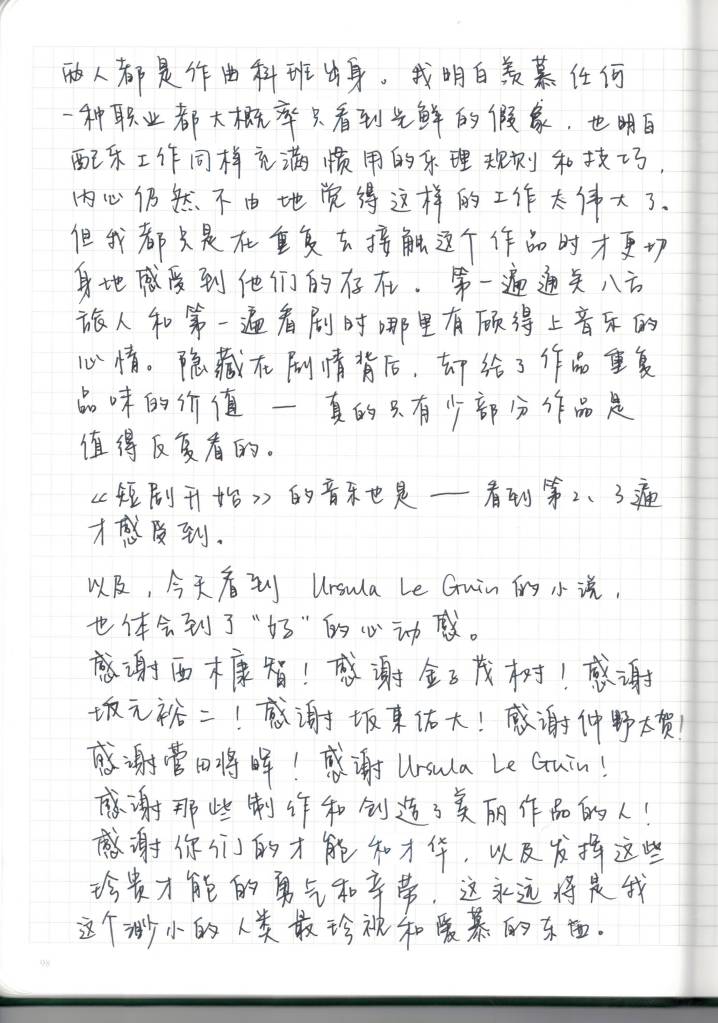 两人都是作曲科班出身。我明白羡慕任何
一种职业都大概率只看到光鲜的假象，也明白
配乐工作同样充满惯用的乐理规则和技巧，
内心仍然不由地觉得这样的工作太伟大了。
但我都只是在重复去接触这个作品时才更切
身地感受到他们的存在。第一遍通关八方
旅人和第一遍看剧时哪里有顾得上音乐的
心情。隐藏在剧情背后，却给了作品重复
品味的价值——真的只有少部分作品是
值得反复看的。
《短剧开始》的音乐也是——看到第2、3遍
才感受到。
以及，今天看到 Ursula Le Guin 的小说，
也体会到了“好”的心动感。
感谢西木康智！感谢金子茂树！感谢
坂元裕二！感谢坂東佑大！感谢仲野太賀！
感谢菅田将晖！感谢 Ursula Le Guin！
感谢那些制作和创造了美丽作品的人！
感谢你们的才能和才华，以及发挥这些
珍贵才能的勇气和辛劳，这永远将是我
这个渺小的人类最珍视和爱慕的东西。
98